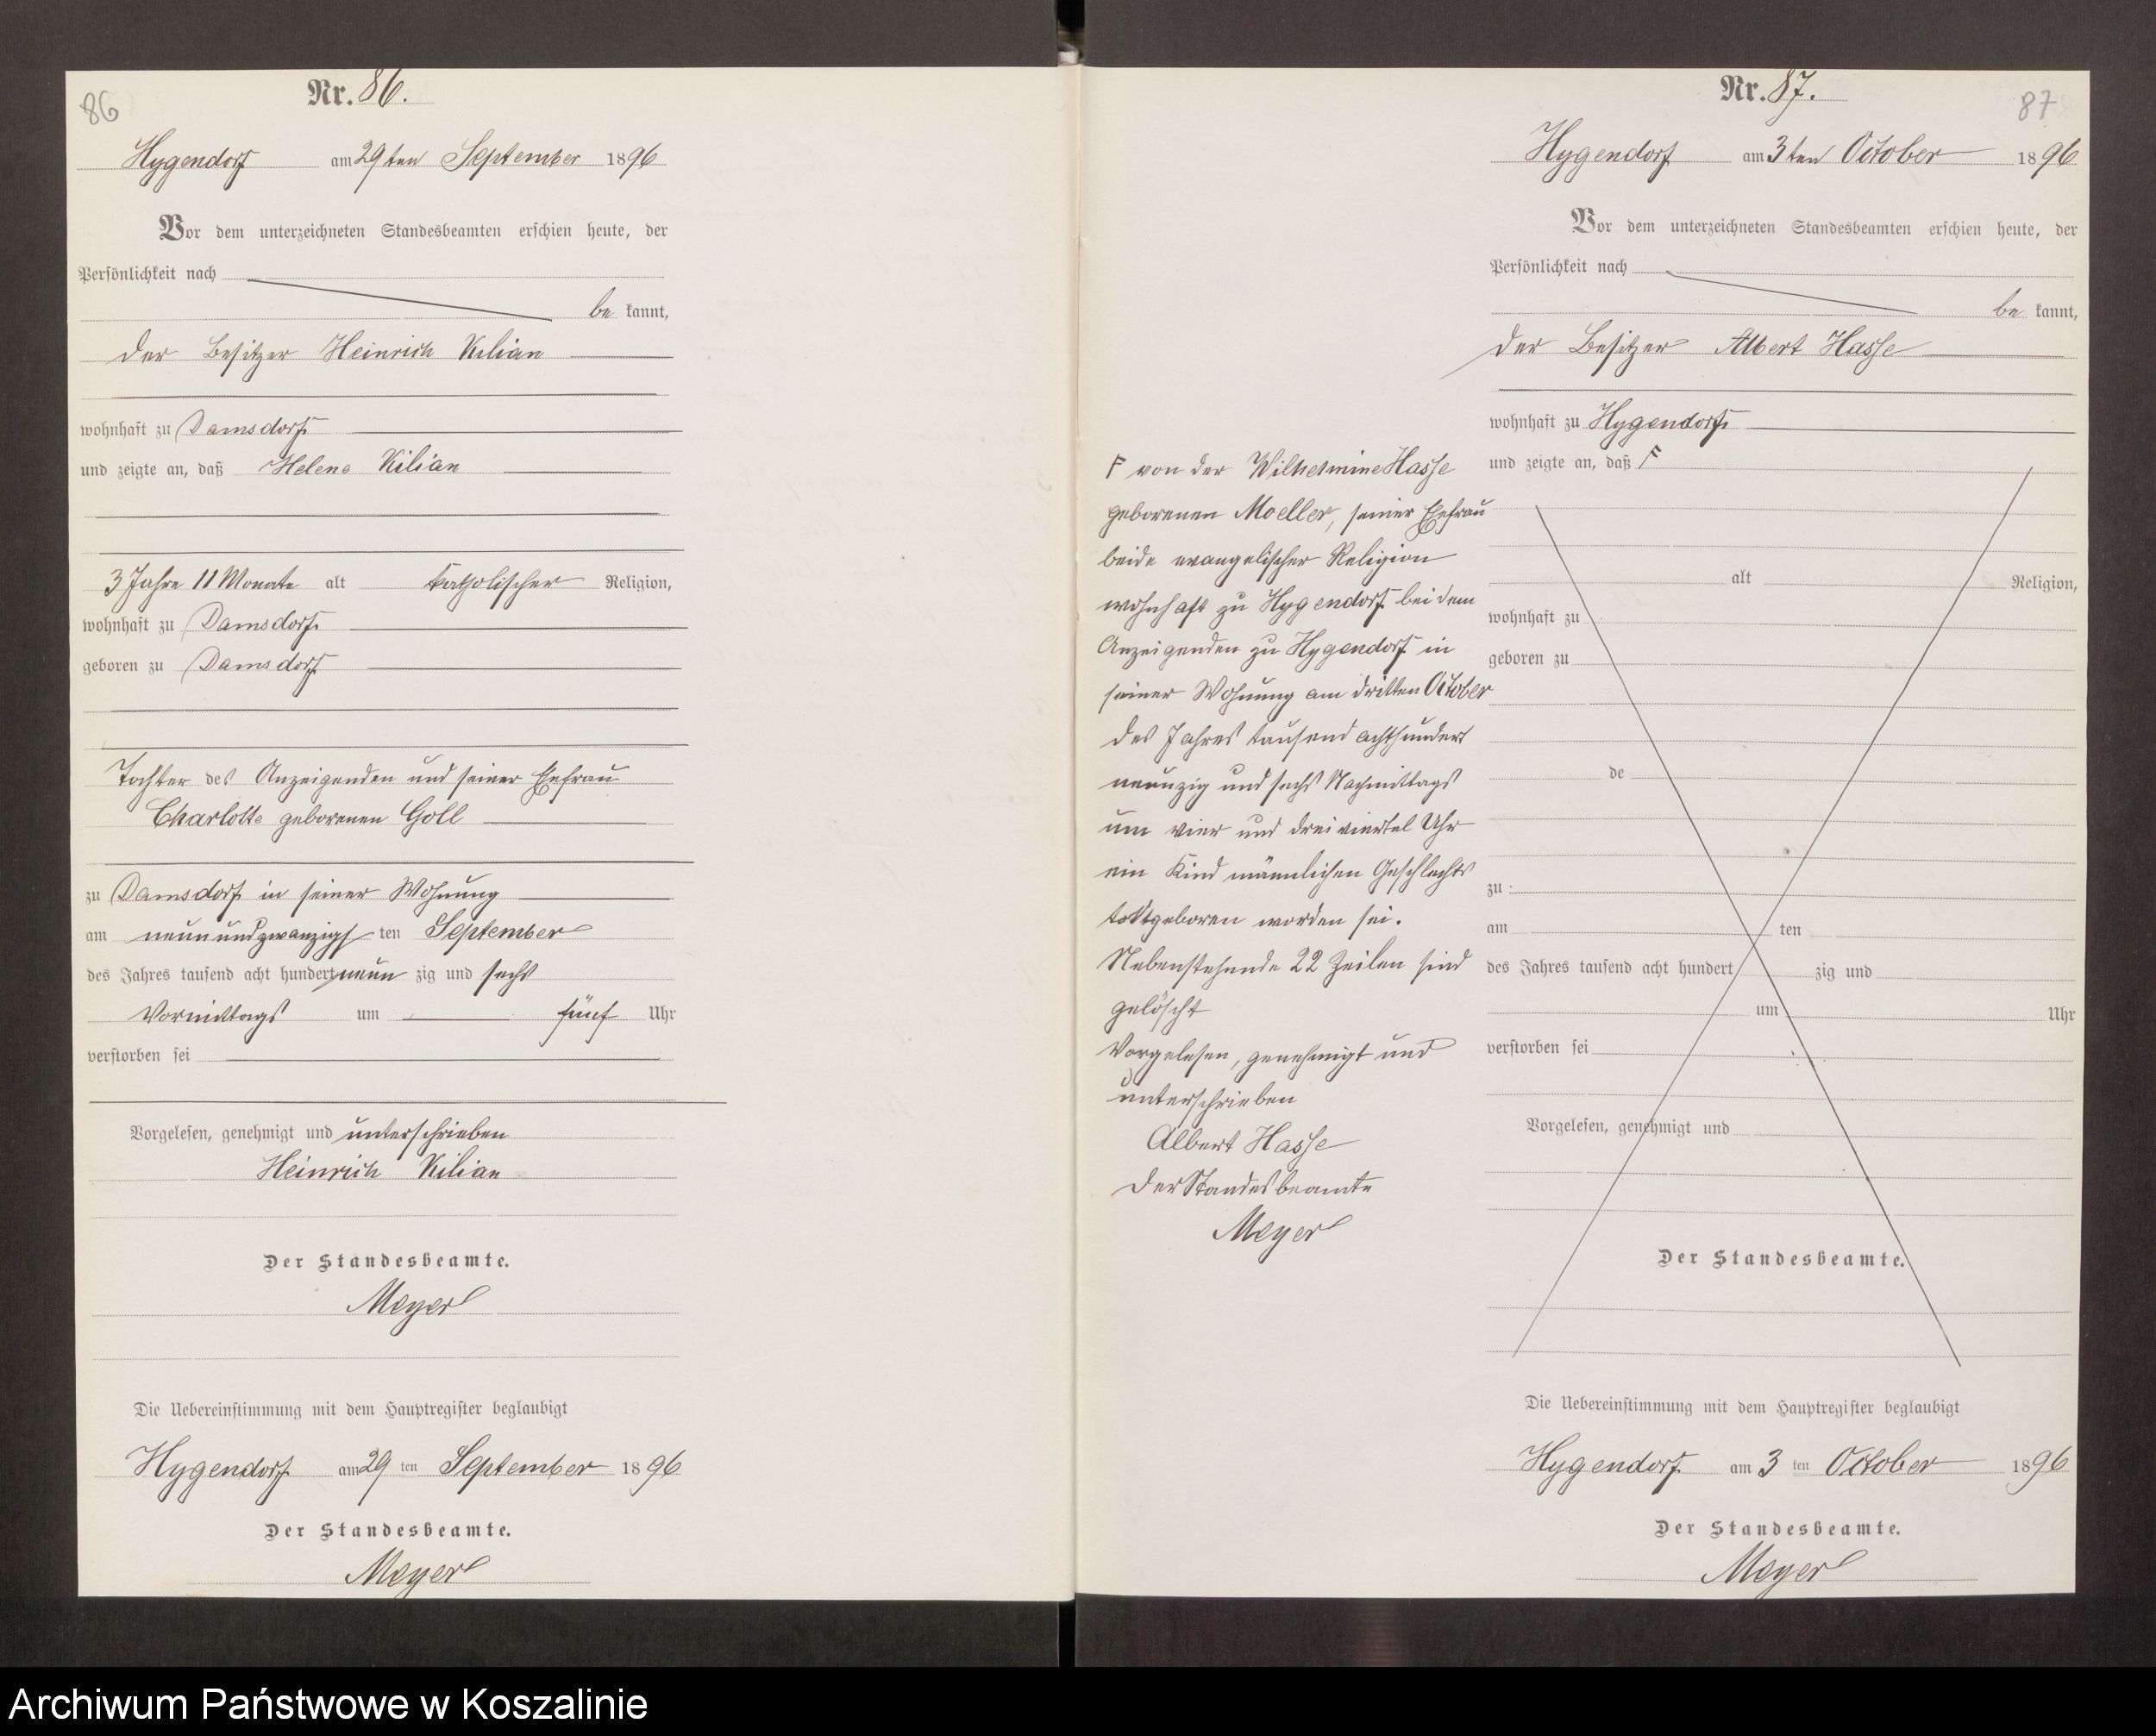 86
Nr. 86.
Hygendorf am 29ten September 1896
Vor dem unterzeichneten Standesbeamten erschien heute, der
Persönlichkeit nach
be kannt,
der Besitzer Heinrich Kilian
wohnhaft zu Damsdorf
und zeigte an, daß Helene Kilian
3 Jahre 11 Monate alt katholischer Religion,
wohnhaft zu Damsdorf
geboren zu Damsdorf
Tochter des Anzeigenden und seiner Ehefrau
Charlotte geborenen Goll
zu Damsdorf in seiner Wohnung
am neunundzwanzigs ten September
des Jahres tausend acht hundert neun zig und sechs
Vormittags um fünf Uhr
verstorben sei
Vorgelesen, genehmigt und unterschrieben
Heinrich Kilian
Der Standesbeamte.
Meyer
Die Uebereinstimmung mit dem Hauptregister beglaubigt
Hygendorf am 29 ten September 1896
Der Standesbeamte.
Meyer
Nr. 87.
87
Hygendorf am 3ten October 1896
Vor dem unterzeichneten Standesbeamten erschien heute, der
Persönlichkeit nach
be kannt,
der Besitzer Albert Hasse
wohnhaft zu Hygendorf
und zeigte an, daß F
F von der Wilhelmine Hasse
geborenen Moeller, seiner Ehefrau
beide evangelischer Religion
wohnhaft zu Hygendorf bei dem
Anzeigenden zu Hygendorf in
seiner Wohnung am dritten October
des Jahres tausend achthundert
neunzig und sechs Nachmittags
um vier und dreiviertel Uhr
ein Kind männlichen Geschlechts
todtgeboren worden sei.
Nebenstehende 22 Zeilen sind
gelöscht
Vorgelesen, genehmigt und
unterschrieben
Albert Hasse
Der Standesbeamte
Meyer
alt Religion,
wohnhaft zu
geboren zu
de
zu
am ten
des Jahres tausend acht hundert zig und
um Uhr
verstorben sei
Vorgelesen, genehmigt und
Der Standesbeamte.
Die Uebereinstimmung mit dem Hauptregister beglaubigt
Hygendorf am 3 ten October 1896
Der Standesbeamte.
Meyer
Archiwum Państwowe w Koszalinie